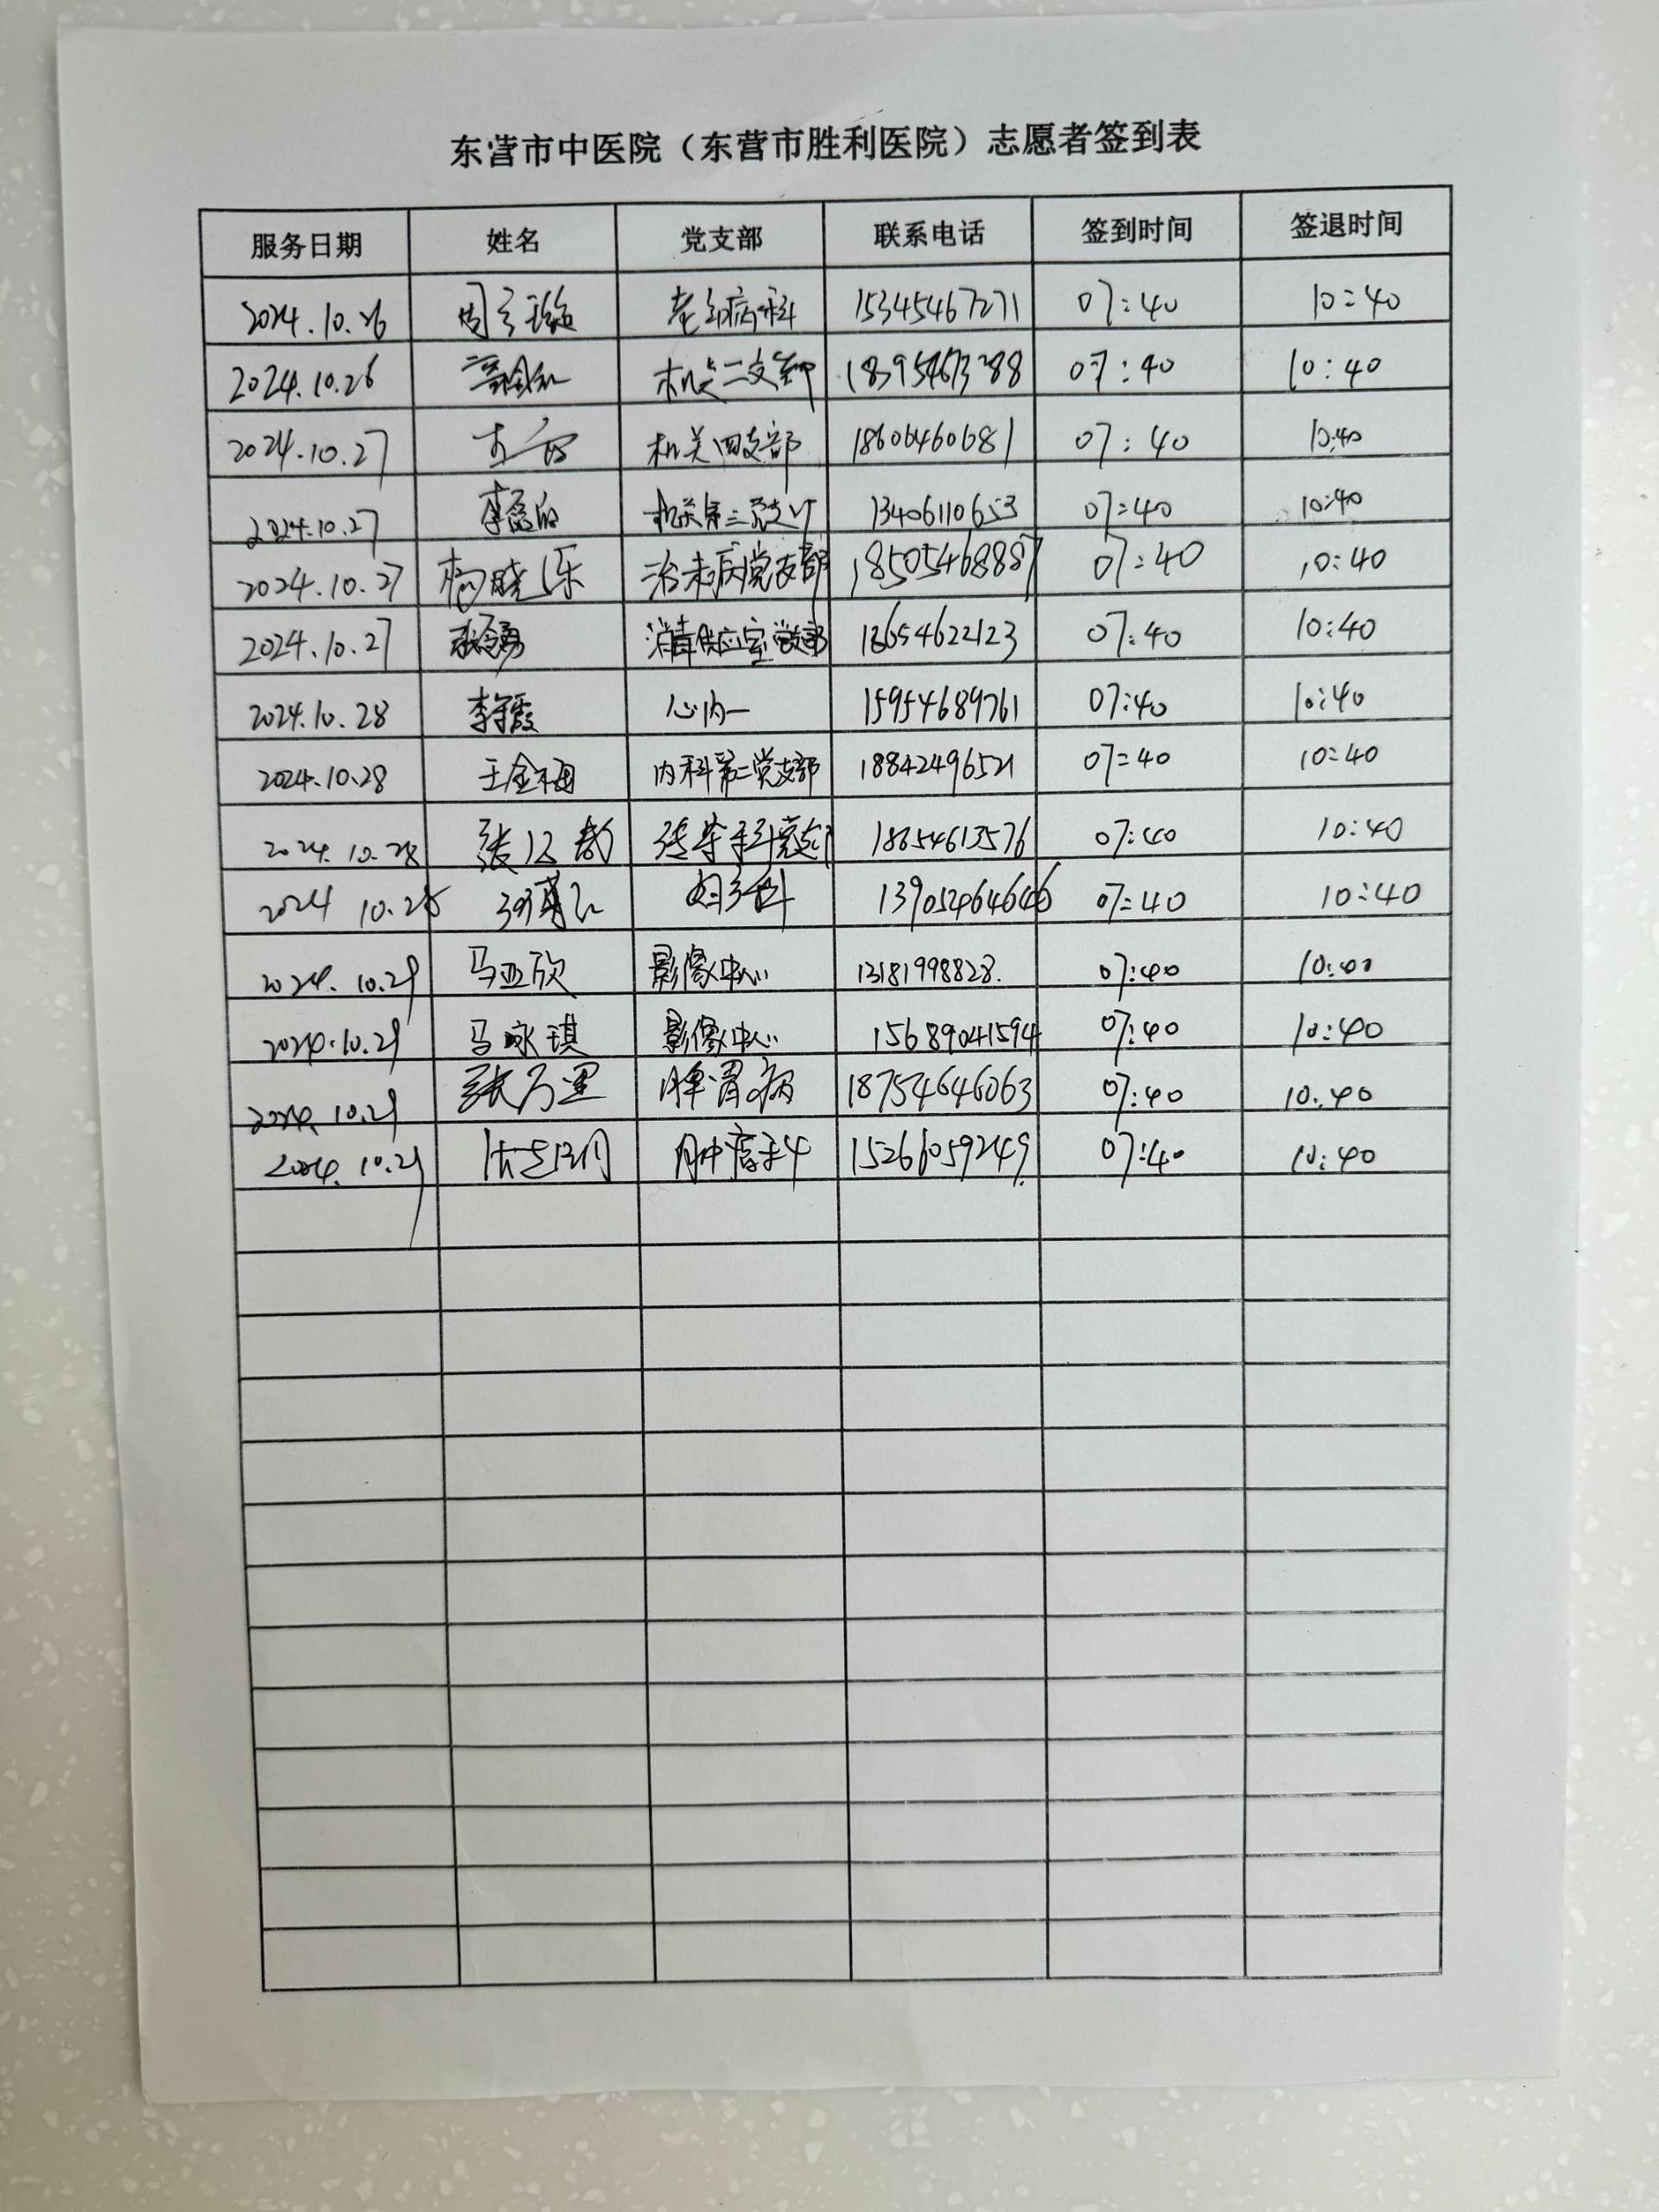 东营市中医院（东营市胜利医院）志愿者签到表
服务日期 姓名 党支部 联系电话 签到时间 签退时间
2024.10.26 周 老年病科 15345467271 07:40 10:40
2024.10.26 机关二支部 18395467388 07:40 10:40
2024.10.27 机关四支部 18606460681 07:40 10:40
2024.10.27 李 机关第三党支部 13406110653 07:40 10:40
2024.10.27 杨晓乐 治未病党支部 18505468887 07:40 10:40
2024.10.27 消毒供应室党支部 13654622123 07:40 10:40
2024.10.28 李霞 心内一 15954689761 07:40 10:40
2024.10.28 王金梅 内科第二党支部 18842496521 07:40 10:40
2024.10.28 张 18654613576 07:40 10:40
2024 10.28 妇产科 07:40 10:40
2024.10.29 马亚欣 影像中心 13181998828. 07:40 10:40
2024.10.29 马咏琪 影像中心 15689041594 07:40 10:40
2024.10.29 张万里 脾胃病 18754646063 07:40 10:40
2024.10.29 15266059249 07:40 10:40